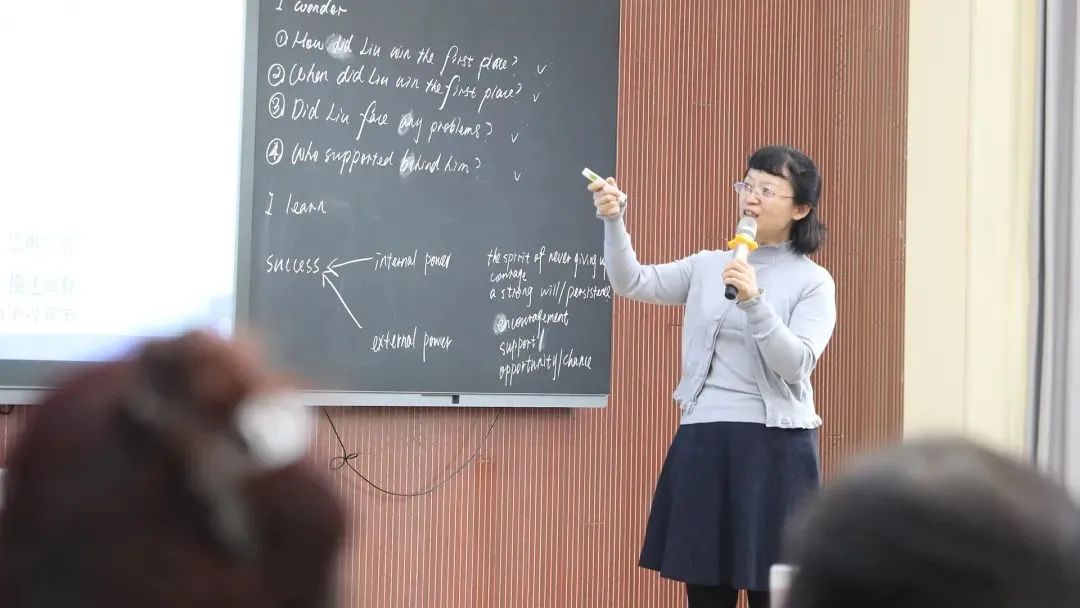 I wonder
① How did Liu win the first place? ✓
② When did Liu win the first place? ✓
③ Did Liu face any problems? ✓
④ Who supported behind him? ✓
I learn
success
internal power
the spirit of never giving
courage
a strong will/persistence
external power
encouragement
support
opportunity/chance